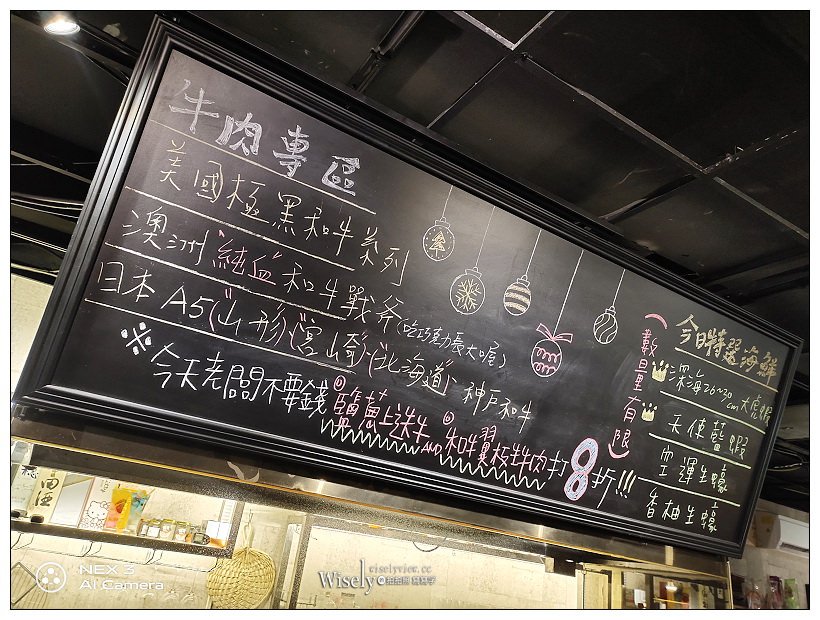 牛肉專區
美國極黑和牛系列
澳洲"純血"和牛戰斧(吃巧克力長大喔)
日本A5("山形"."宮崎"."北海道" 神戶和牛
※今天老闆不要錢 ①鹽蔥上選牛 AND ②和牛翼板牛肉打8折!!!
(數量有限)
今日特選海鮮
深海26~30cm大虎蝦
天使藍蝦
空運生蠔
香柚生蠔
NEX 3
AI Camera
Wisely
wiselyview.cc
拍拍照寫寫字